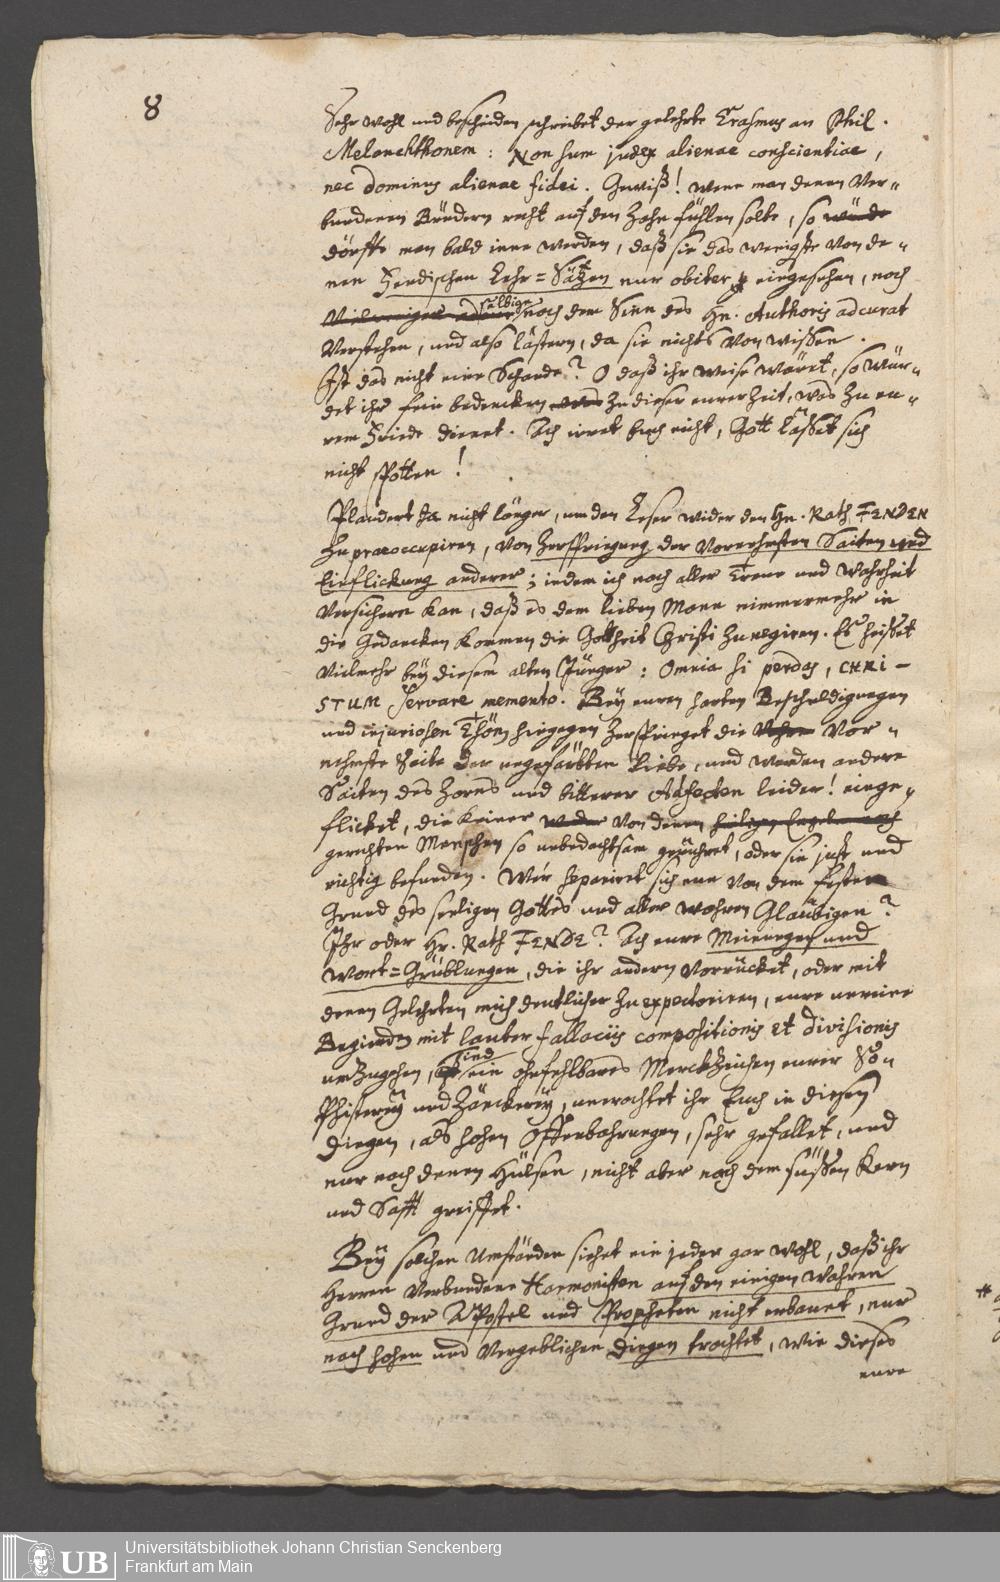 8
Sehr wohl und bescheiden schreibet der gelehrte Erasmus an Phil.
Melanchthonem: Non sum judex alienae conscientiae,
nec dominus alienae fidei. Gewiß! wenn man denen Ver-
bundenen Brüdern recht auf den Zahn fühlen solte, so würde
dörffte man bald inne werden, daß sie das wenigste von de-
nen Fendischen Lehr=Sätzen nur obiter eingesehen, noch
selbige nach dem Sinn des Hn. Authoris adcurat
verstehen, und also lästern, da sie nichts von wissen.
Ist das nicht eine Schande? O daß ihr weise wäret, so wür-
det ihr fein bedencken zu dieser eurer Zeit, was zu eu-
rem Friede dienet. Ach irret Euch nicht, Gott lässet sich
nicht spotten!
Plaudert Ja nicht länger, um den Leser wider den Hn. Rath FENDEN
zu praeoccupiren, von Zerspringung der vornehmsten Saiten und
Einflickung anderer; indem ich nach aller Treue und Wahrheit
versichern kan, daß es dem lieben Mann nimmermehr in
die Gedancken kommen die Gottheit Christi zu negiren. Es heisset
vielmehr bey diesem alten Jünger: Omnia si perdas, CHRI-
STUM servare memento. Bey euren harten Beschuldigungen
und injuriosen Thön hingegen zerspringet die Vor-
nehmste Saite der ungefärbten Liebe, und werden andere
Saiten des Zorns und bitterer Adfecten leider! einge-
flicket, die keiner weder von denen heiligen Engeln noch
gerechten Menschen so unbedachtsam gerühret, oder sie just und
richtig befunden. Wer separiret sich nun von dem festen
Grund des seeligen Gottes und aller wahren Gläubigen?
Ihr oder Hr. Rath FENDE? Ach eure Meinungen und
Wort=Grüblungen, die ihr andern vorrücket, oder mit
denen Gelehrten mich deutlicher zu expectoriren, eure unreine
Begierden mit lauter fallaciis compositionis et divisionis
umzugehen, sind ein ohnfehlbares Merckzeichen eurer So-
phisterey und Zänckerey, unerachtet ihr Euch in diesen
Dingen, als hohen Offenbahrungen, sehr gefallet, und
nur nach denen Hülsen, nicht aber nach dem süssen Kern
und Safft greiffet.
Bey solchen Umständen siehet ein jeder gar wohl, daß ihr
Herren Verbundene Harmonisten auf den einigen wahren
Grund der Apostel und Propheten nicht erbauet, nur
nach hohen und vergeblichen Dingen trachtet, wie dieses
eure
Universitätsbibliothek Johann Christian Senckenberg
Frankfurt am Main
UB